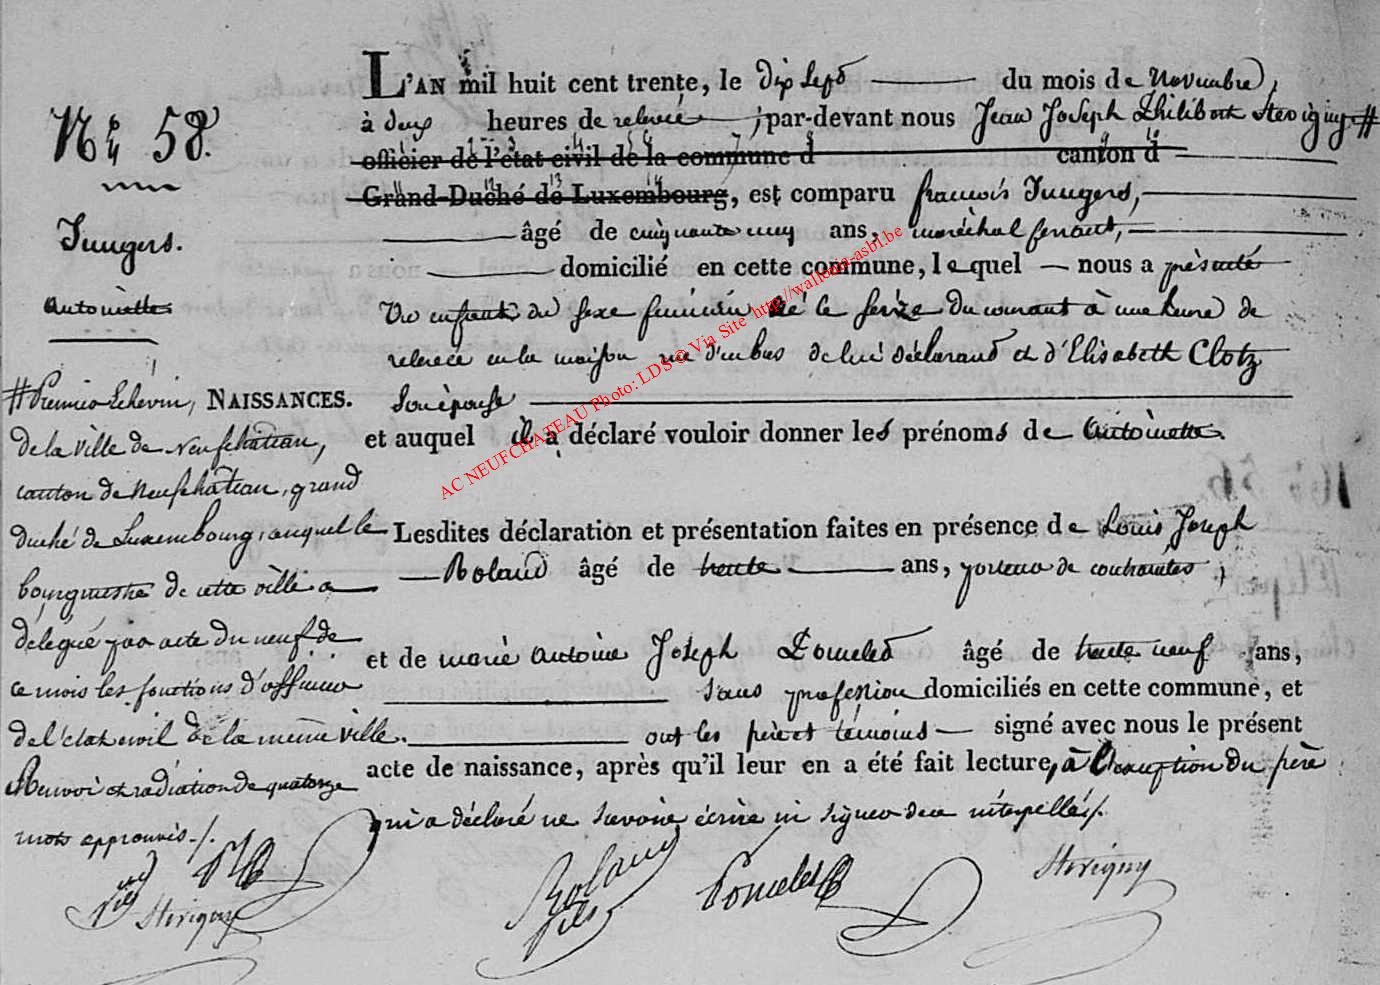 L'AN mil huit cent trente, le dix sept du mois de Novembre,
à deux heures de relevée, par-devant nous Jean Joseph Philibert Stevigny #
officier de l'état civil de la commune d canton d
Grand-Duché de Luxembourg, est comparu françois Jungers,
âgé de cinquante ans, maréchal ferrant,
domicilié en cette commune, lequel nous a présenté
Un enfant du sexe féminin né le seize du courant à une heure de
relevée en la maison rue d'enbas de lui déclarand et d'Elisabeth Clotz
Son épouse
et auquel il a déclaré vouloir donner les prénoms de Antoinette.
Lesdites déclaration et présentation faites en présence de Louis Joseph
Roland âgé de trente ans, porteur de contraintes,
et de marie antoine Joseph Pomeled âgé de trente neuf ans,
sans profession domiciliés en cette commune, et
ont les père et témoins signé avec nous le présent
acte de naissance, après qu'il leur en a été fait lecture, à l'exception du père
qui a déclaré ne savoir écrire ni signer de ce interpellé ./.
Nº 58.
Jungers.
Antoinette
NAISSANCES.
# Premier Echevin,
de la ville de Neufchateau,
canton de Neufchâteau, grand
duché de Luxembourg, auquel le
bourgmestre de cette ville a
délégué par acte du neuf de
ce mois les fonctions d'officier
de l'etat civil de la même ville.
Renvoi et radiation de quatorze
mots approuvés ./.
Stevigny
Roland
fils
Pomeled
Stevigny
AC NEUFCHATEAU Photo: LDS © Via Site http://wallonia-asbl.be